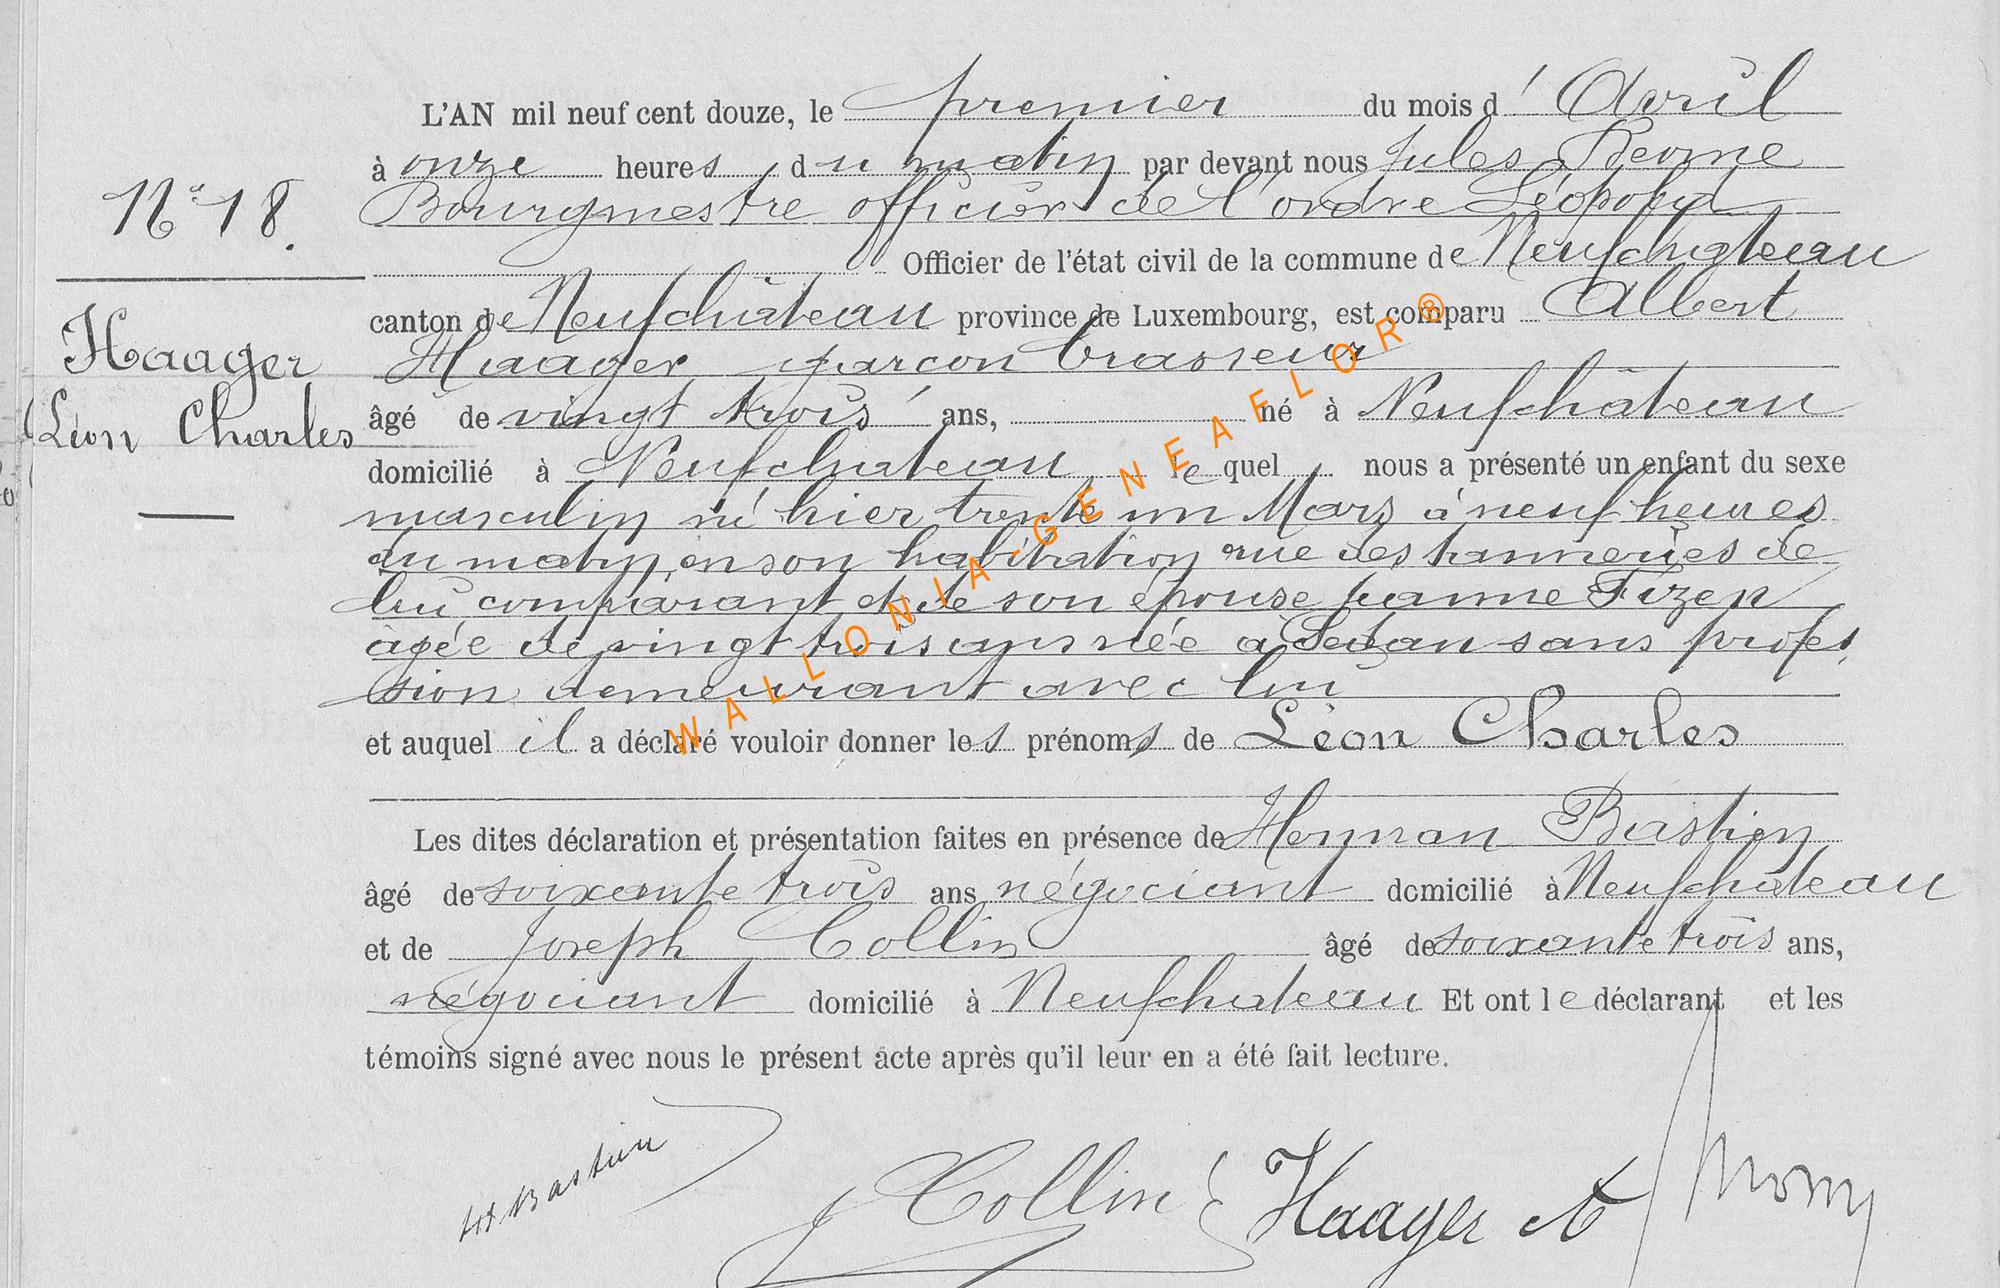 L'AN mil neuf cent douze, le premier du mois d'Avril
à onze heures du matin par devant nous Jules
Bourgmestre officier de l'ordre Léopold
Officier de l'état civil de la commune de Neufchateau
canton de Neufchâteau province de Luxembourg, est comparu Albert
Haager garçon brasseur
âgé de vingt trois ans, né à Neufchâteau
domicilié à Neufchateau lequel nous a présenté un enfant du sexe
masculin né hier trente un Mars à neuf heures
du matin, en son habitation rue des tanneries de
lui comparant et de son épouse Jeanne Fizen
agée de vingt trois ans née à Sedan sans profes
sion demeurant avec lui
et auquel il a déclaré vouloir donner les prénoms de Léon Charles
Les dites déclaration et présentation faites en présence de Herman Bastien
âgé de soixante trois ans négociant domicilié à Neufchateau
et de Joseph Collin âgé de soixante trois ans,
négociant domicilié à Neufchateau Et ont le déclarant et les
témoins signé avec nous le présent acte après qu'il leur en a été fait lecture.
N° 18.
Haager
Léon Charles
Bastien
J Collin Haager A
WALLONIA-GENEAFLOR®